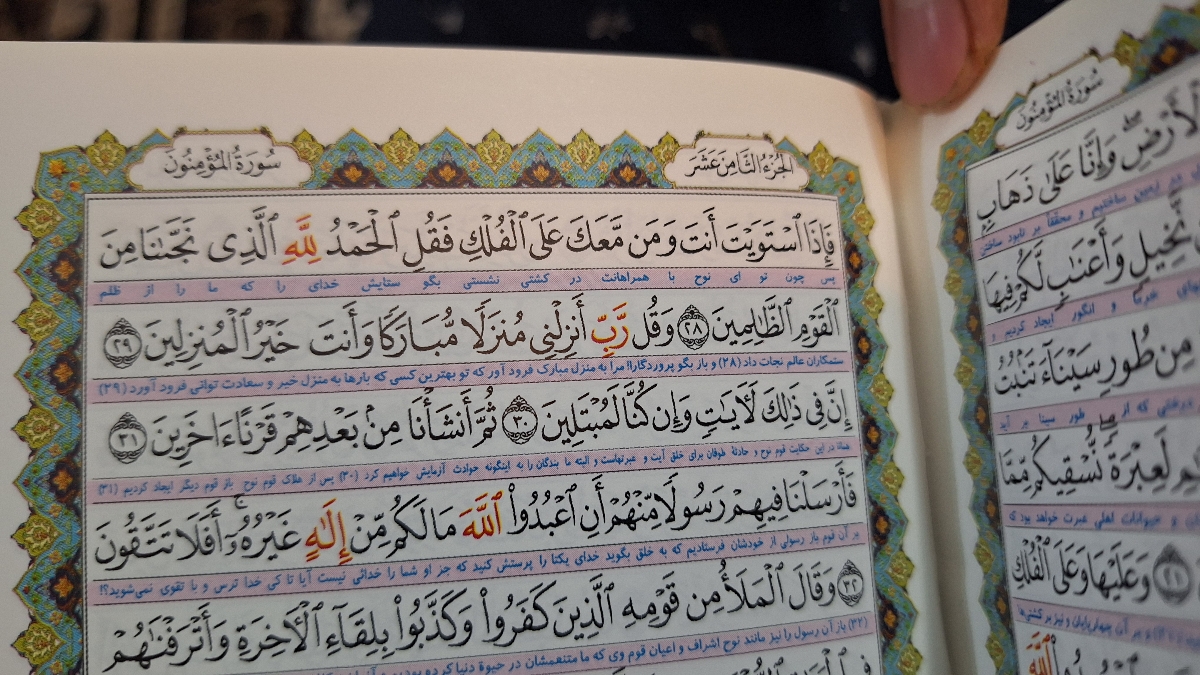 سُورَةُ الْمُؤْمِنُونَ
لْأَرْضِ وَإِنَّا عَلَىٰ ذَهَابٍ
نَّخِيلٍ وَأَعْنَٰبٍ لَّكُمْ فِيهَا
انگور ایجاد کردیم و
مِن طُورِ سَيْنَآءَ تَنۢبُتُ
طور سینا بر آید
لَعِبْرَةً نُّسْقِيكُم مِّمَّا
و حیوانات اهلی عبرت خواهد بود که
﴿٢١﴾ وَعَلَيْهَا وَعَلَى الْفُلْكِ
و بر آن چهارپایان و نیز بر کشتی‌ها
الجُزءُ الثَّامِنَ عَشَرَ
سُورَةُ الْمُؤْمِنُونَ
فَإِذَا ٱسْتَوَيْتَ أَنتَ وَمَن مَّعَكَ عَلَى ٱلْفُلْكِ فَقُلِ ٱلْحَمْدُ لِلَّهِ ٱلَّذِى نَجَّىٰنَا مِنَ
پس چون تو ای نوح با همراهانت در کشتی نشستی بگو ستایش خدای را که ما را از ظلم
ٱلْقَوْمِ ٱلظَّٰلِمِينَ ﴿٢٨﴾ وَقُل رَّبِّ أَنزِلْنِى مُنزَلًا مُّبَارَكًا وَأَنتَ خَيْرُ ٱلْمُنزِلِينَ ﴿٢٩﴾
ستمکاران عالم نجات داد (۲۸) و باز بگو پروردگارا! مرا به منزل مبارک فرود آور که تو بهترین کسی که بارها به منزل خیر و سعادت توانی فرود آورد (۲۹)
إِنَّ فِى ذَٰلِكَ لَـَٔايَٰتٍ وَإِن كُنَّا لَمُبْتَلِينَ ﴿٣٠﴾ ثُمَّ أَنشَأْنَا مِنۢ بَعْدِهِمْ قَرْنًا ءَاخَرِينَ ﴿٣١﴾
همانا در این حکایت قوم نوح و حادثهٔ طوفان برای خلق آیت و عبرتهاست و البته ما بندگان را به اینگونه حوادث آزمایش خواهیم کرد (۳۰) پس از هلاک قوم نوح باز قوم دیگر ایجاد کردیم (۳۱)
فَأَرْسَلْنَا فِيهِمْ رَسُولًا مِّنْهُمْ أَنِ ٱعْبُدُوا۟ ٱللَّهَ مَا لَكُم مِّنْ إِلَٰهٍ غَيْرُهُۥٓ ۚ أَفَلَا تَتَّقُونَ
بر آن قوم باز رسولی از خودشان فرستادیم که به خلق بگوید خدای یکتا را پرستش کنید که جز او شما را خدائی نیست آیا تا کی خدا ترس و با تقوی نمی‌شوید؟!
﴿٣٢﴾ وَقَالَ ٱلْمَلَأُ مِن قَوْمِهِ ٱلَّذِينَ كَفَرُوا۟ وَكَذَّبُوا۟ بِلِقَآءِ ٱلْـَٔاخِرَةِ وَأَتْرَفْنَٰهُمْ
(۳۲) باز آن رسول را نیز مانند نوح اشراف و اعیان قوم وی که ما متنعمشان در حیوة دنیا کرده بودیم و